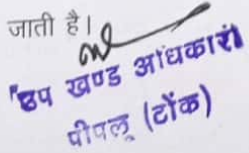 जाती है।
उप खण्ड अधिकारी
पीपलू (टोंक)